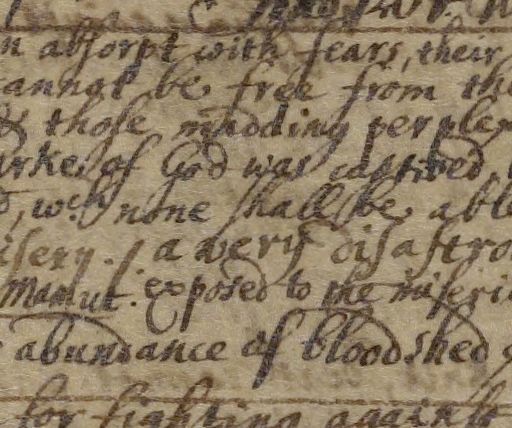 n absorpt with fears, their
cannot be free from the
& those madding perplex
arke of God was captived,
d, wch none shall be able
isery. / a very disastro
Mamlut. exposed to the miseri
abundance of bloodshed
for fighting against